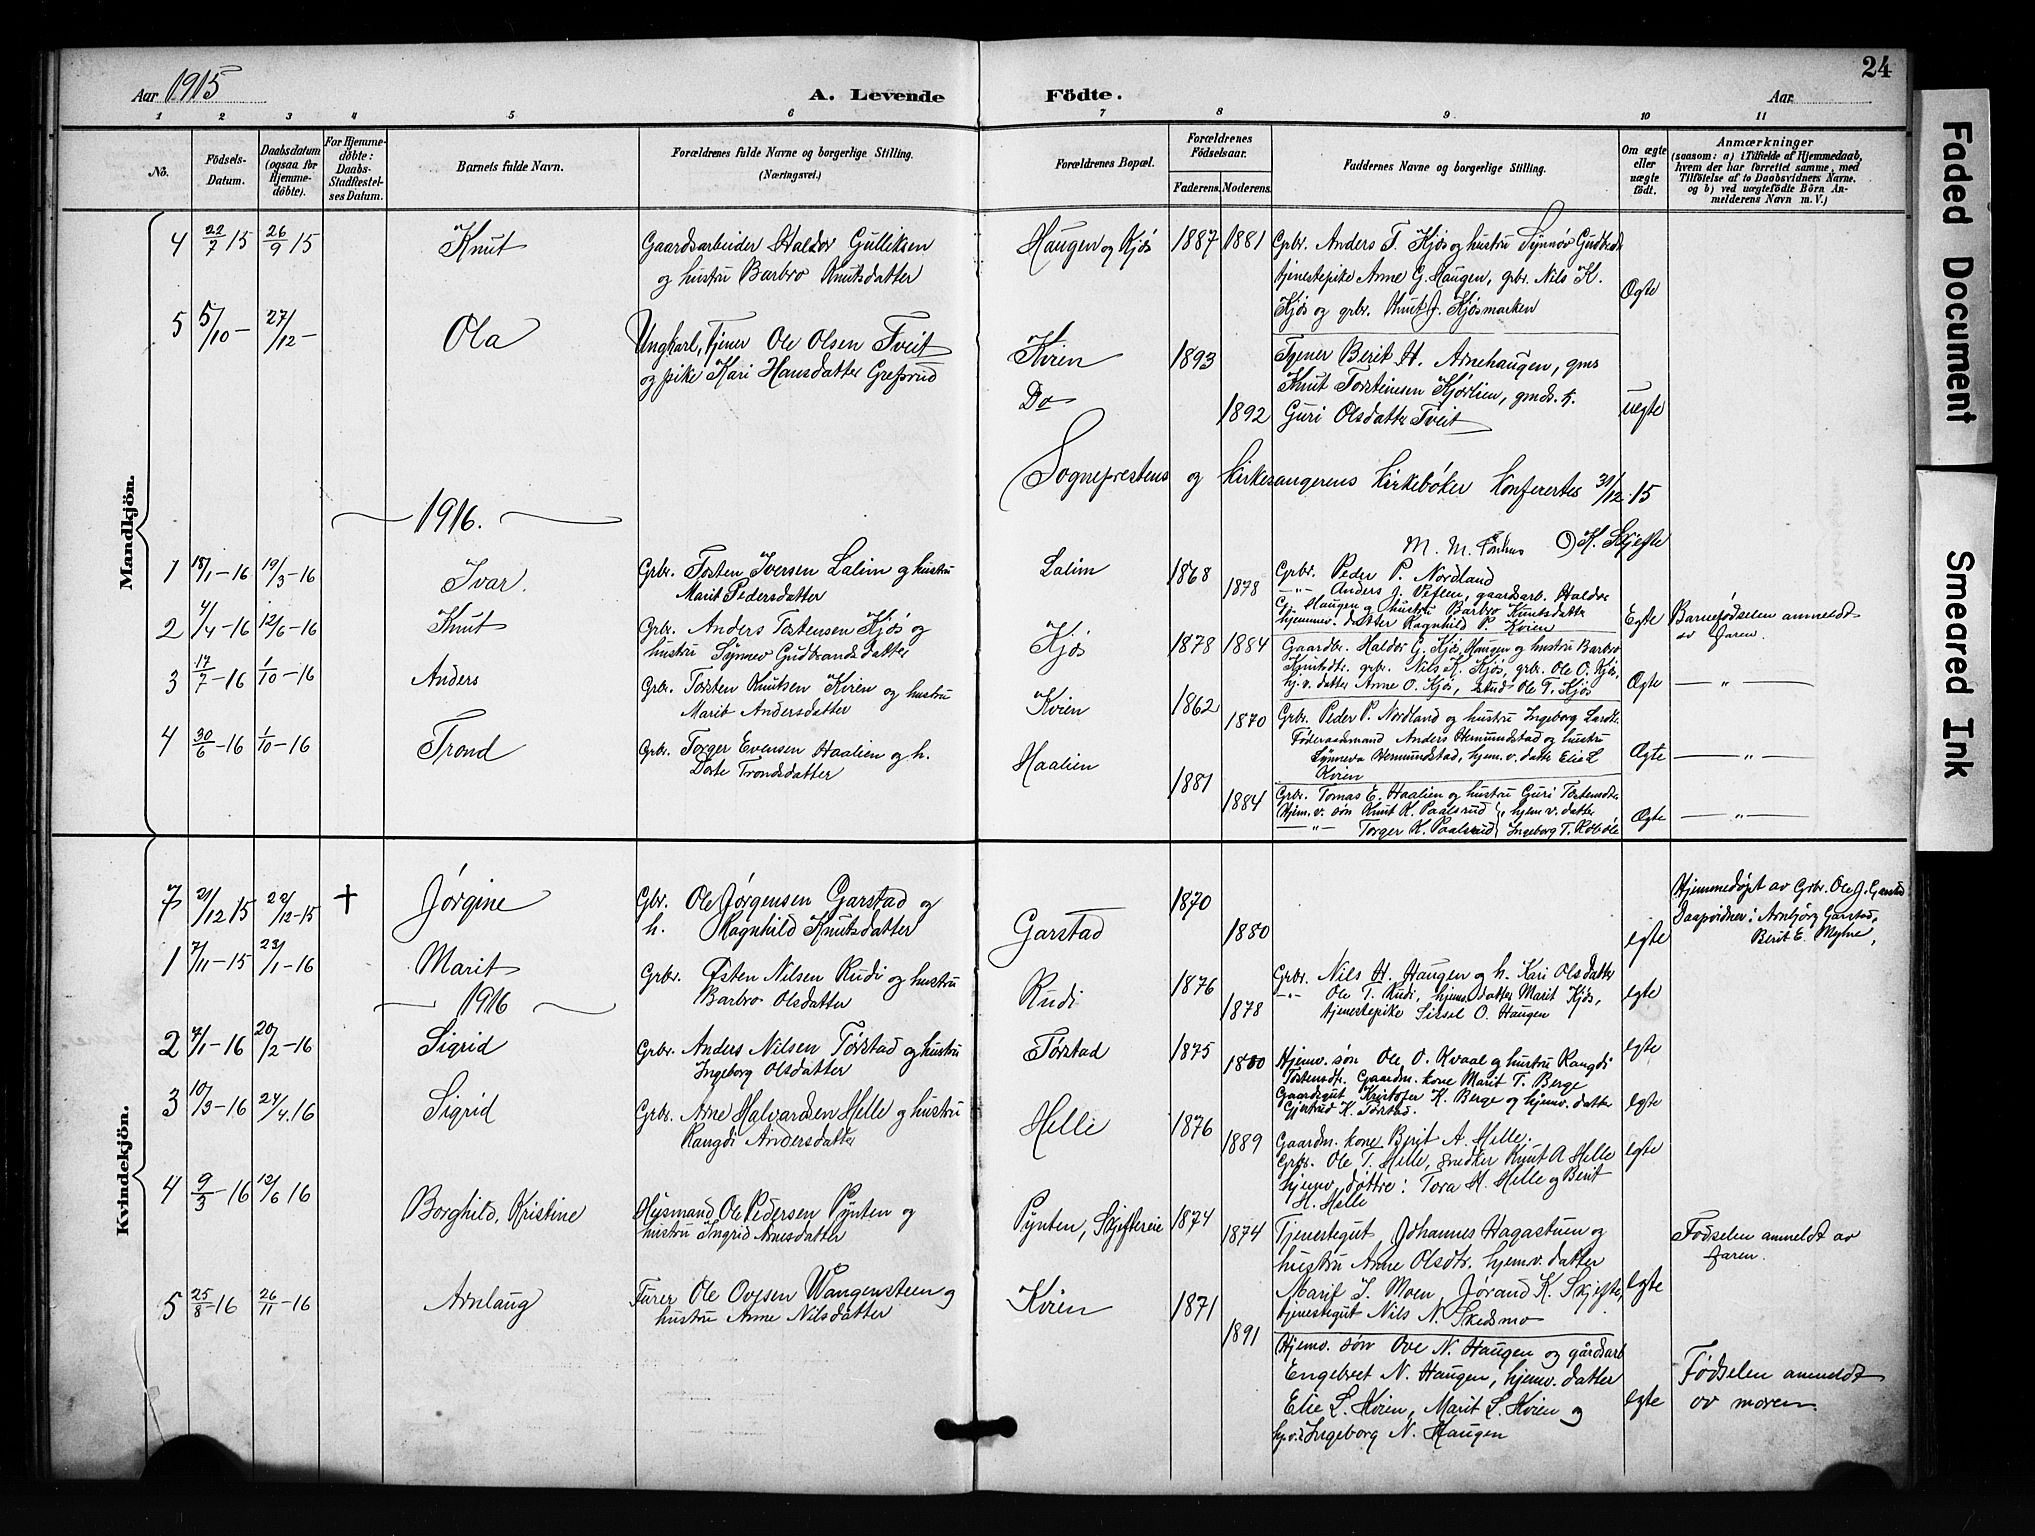 24
Aar 1915
A. Levende Födte.
Aar
1 2 3 4 5 6 7 8 9 10 11
No.
Födsels-Datum.
Daabsdatum (ogsaa for Hjemmedöbte).
For Hjemmedöbte: Daabs-Stadfæstelses Datum.
Barnets fulde Navn.
Forældrenes fulde Navne og borgerlige Stilling.
(Næringsvei.)
Forældrenes Bopæl.
Forældrenes Födselsaar.
Faderens. Moderens.
Faddernes Navne og borgerlige Stilling.
Om ægte eller uægte födt.
Anmærkninger
(saasom: a) i Tilfælde af Hjemmedaab, hvem der har forrettet samme, med Tilföielse af to Daabsvidners Navne. og b) ved uægtefödte Börn Anmelderens Navn m. V.)
Mandkjön.
4 22/7 15 26/9 15 Knut
Gaardsarbeider Haldor Gulliksen
og hustru Barbro Knutsdatter
Haugen og Kjøs 1887 1881
Grbr. Anders T. Kjøs og hustru Synnøv Gudbrds
tjenestepike Anne G. Haugen, grbr. Nils K.
Kjøs og grbr. Knut J. Kjøsmarken
Ægte
5 5/10 – 27/12 – Ola
Ungkarl, tjener Ole Olsen Tveit
og pike Kari Hansdatter Grefsrud
Kvien 1893
Do 1892
Tjener Berit H. Arnehaugen, gms
Knut Torsteinsen Kjørlien, gmds. k.
Guri Olsdatter Tveit
uegte
Sogneprestens og Kirkesangerens Kirkebøker Konfereres 31/12 15
M. M. Fønhus O. K. Skjefte
1916.
1 18/1-16 19/3-16 Ivar.
Grbr. Tosten Iversen Lalim og hustru
Marit Pedersdatter
Lalim 1868 1878
Grbr. Peder P. Nordland
-"- Anders J. Veflen, gaardsarb. Haldor
G. Haugen og hustru Barbro Knutsdatter
hjemmev. datter Ragnhild P. Kvien
Egte
Barnefødselen anmeldt
av faren.
2 4/4-16 12/6-16 Knut
Grbr. Anders Tostensen Kjøs og
hustru Synnev Gudbrandsdatter
Kjøs 1878 1884
Gaardbr. Haldor G. Kjøs Haugen og hustru Barbro
Knutsdtr. grbr. Nils K. Kjøs, grbr. Ole O. Kjøs,
hj.v. datter Anne O. Kjøs, stud Ole T. Kjøs
Ægte
— " —
3 17/7-16 1/10-16 Anders
Grbr. Torsten Knutsen Kvien og hustru
Marit Andersdatter
Kvien 1862 1870
Grbr. Peder P. Nordland og hustru Ingeborg Larsdtr.
Føderaadsmand Anders Hemundstad og hustru
Synneva Hemundstad, hjem.v. datter Elie L
Kvien
Ægte
— " —
4 30/6-16 1/10-16 Trond
Grbr. Torger Evensen Haalien og h.
Dorte Trondsdatter
Haalien 1881 1884
Grbr. Tomas E. Haalien og hustru Guri Tostensdtr.
Hjem.v. søn Knut K. Paalsrud, hjem v. datter
-"- Torger K. Paalsrud Ingeborg T. Robøle
Ægte
— " —
Kvindekjön.
7 21/12 15 22/12-15 † Jørgine
Gbr. Ole Jørgensen Garstad og
h. Ragnhild Knutsdatter
Garstad 1870 1880
egte
Hjemmedøpt av Grbr. Ole J. Garstad
Daapvidner: Arnbjørg Garstad,
Berit E. Myhre,
1 7/11-15 23/1-16 Marit
Grbr. Østen Nilsen Rudi og hustru
Barbro Olsdatter
Rudi 1876 1878
Grbr. Nils H. Haugen og h. Kari Olsdatter
-"- Ole T. Rudi, hjem. datter Marit Kjøs,
tjenestepike Sissel O. Haugen
egte
1916
2 7/1-16 20/2-16 Sigrid
Grbr. Anders Nilsen Tørstad og hustru
Ingeborg Olsdatter
Tørstad 1875 1880
Hjemv. søn Ole O. Kvaal og hustru Rangdi
Tostensdtr. Gaardm. kone Marit T. Berge
Gaardsgut Kristofer K. Berge og hjemv. datter
Gjertrud K. Tørstad.
egte
3 10/3-16 24/4.16 Sigrid
Grbr. Arne Halvardsen Helle og hustru
Rangdi Andersdatter
Helle 1876 1889
Gaardm. kone Berit A. Helle.
Grbr. Ole T. Helle, snedker Knut A Helle
hjemv. døttre: Tora H. Helle og Berit
H. Helle
egte
egte
4 9/3-16 12/6 16 Borghild, Kristine
Husmand Ole Pedersen Pynten og
hustru Ingrid Arnesdatter
Pynten, Skjefteeie 1874 1874
Tjenestegut Johannes Hagastuen og
hustru Anne Olsdtr. hjemv. datter
Marit I. Moen, Jørand K. Skjefte,
tjenestegut Nils N. Skedsmo
egte
Fødselen anmeldt av
faren.
5 25/8-16 26/11-16 Arnlaug
Furer Ole Ovesen Wangensteen og
hustru Anne Nilsdatter
Kvien 1871 1891
Hjemv. søn Ove N. Haugen og gårdsarb
Engebret N. Haugen, hjemv. datter
Elie L. Kvien, Marit L. Kvien og
hj.v.d. Ingeborg N. Haugen
egte
Fødselen anmeldt
av moren.
Faded Document
Smeared Ink